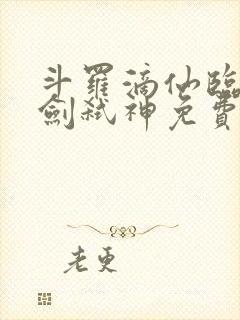 斗羅滴仙臨
劍弒神免費
老更